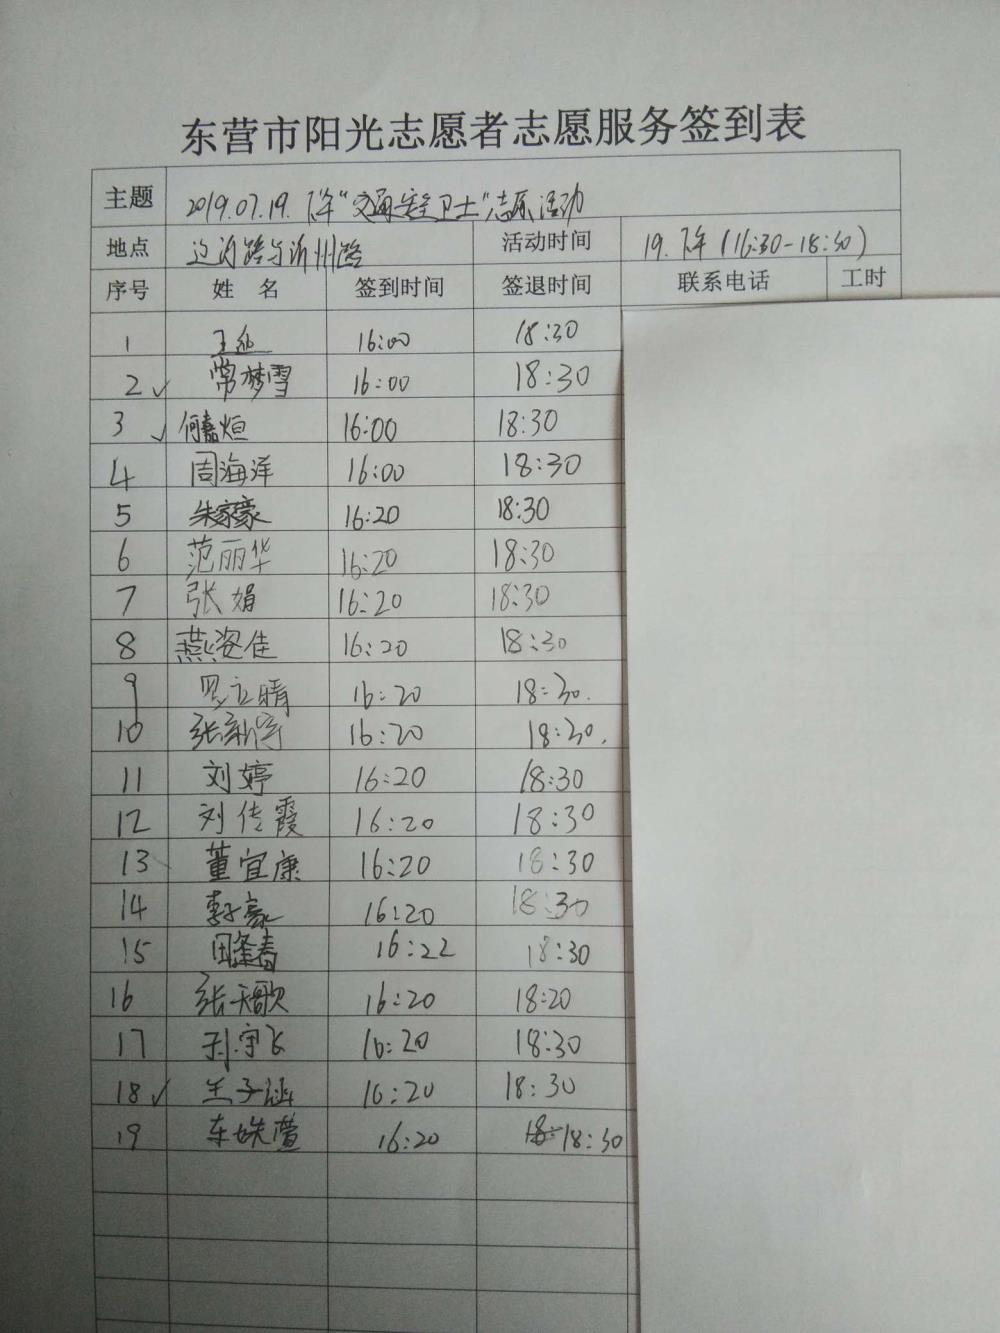 东营市阳光志愿者志愿服务签到表
主题 2019.07.19.下午“交通安全卫士”志愿活动
地点 沂州路 活动时间 19.下午(16:30-18:30)
序号 姓 名 签到时间 签退时间 联系电话 工时
1 王 16:00 18:30
2 ✓ 常梦雪 16:00 18:30
3 ✓ 何嘉烜 16:00 18:30
4 周海洋 16:00 18:30
5 朱家豪 16:20 18:30
6 范丽华 16:20 18:30
7 张娟 16:20 18:30
8 燕姿佳 16:20 18:30
9 晴 16:20 18:30.
10 张新宇 16:20 18:30.
11 刘婷 16:20 18:30
12 刘传霞 16:20 18:30
13 董宜康 16:20 18:30
14 李豪 16:20 18:30
15 田逢春 16:22 18:30
16 张天歌 16:20 18:20
17 刘宇飞 16:20 18:30
18 ✓ 王子涵 16:20 18:30
19 车姝萱 16:20 18:30